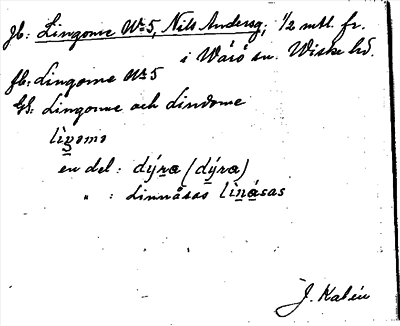 Jb: Lingome No 5, Nils Anderss, 1/2 mtl. fr.
i Wärö sn. Wiske hd.
Jb: Lingome No 5
GS: Lingome och Lindome
lìŋomo
en del: dýra (dýra)
" : Linnåsas lìnásas
J. Kalén